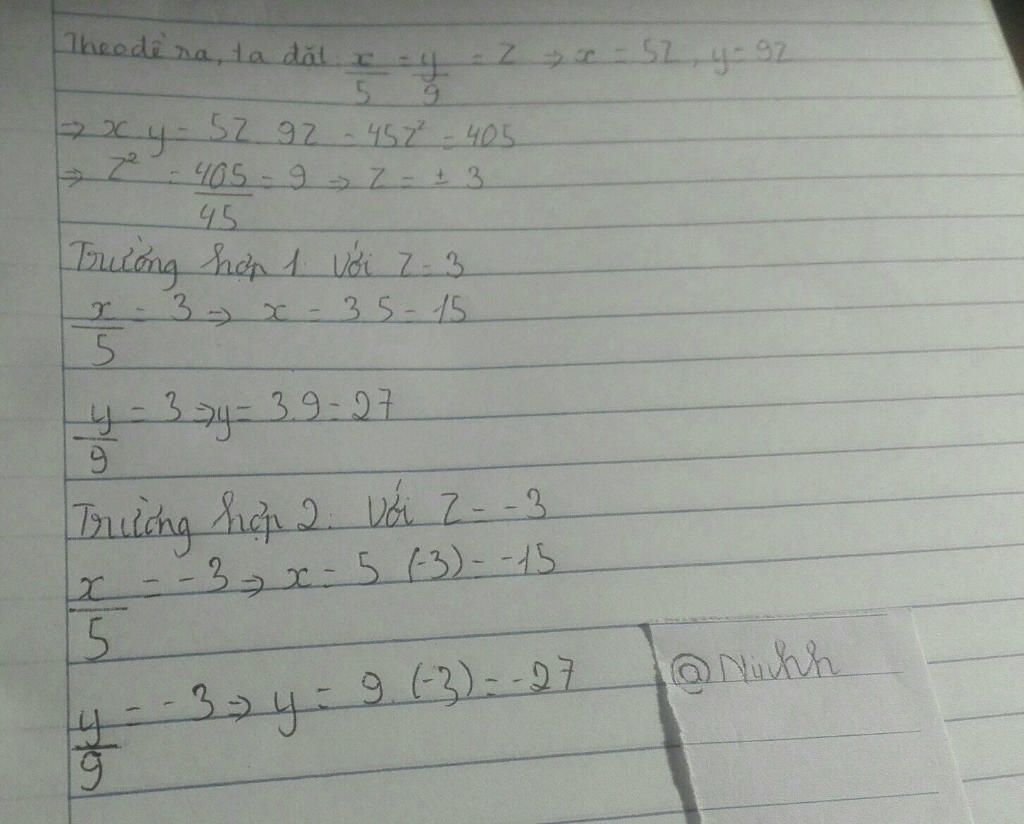 Theo đề ra, ta đặt x/5 = y/9 = Z ⇒ x = 5Z, y = 9Z
⇒ x.y = 5Z.9Z = 45Z² = 405
⇒ Z² = 405/45 = 9 ⇒ Z = ± 3
Trường hợp 1: Với Z = 3
x/5 = 3 ⇒ x = 3.5 = 15
y/9 = 3 ⇒ y = 3.9 = 27
Trường hợp 2: Với Z = -3
x/5 = -3 ⇒ x = 5.(-3) = -15
y/9 = -3 ⇒ y = 9.(-3) = -27